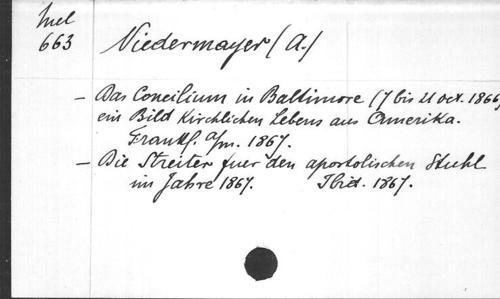 Mel
663
Niedermayer (A.)
- Das Concilium in Baltimore (7 bis 21 Oct. 1866)
ein Bild Kirchlichen Lebens aus Amerika.
Frankf. a/m. 1867.
- Die Streiter fuer den apostolischen Stuhl
im Jahre 1867. Ibid. 1867.